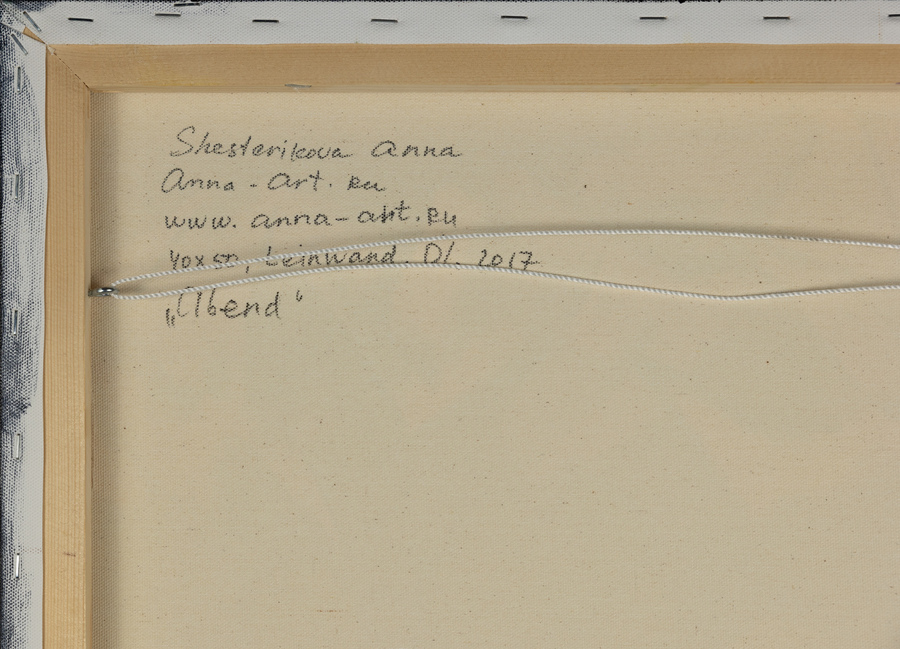 Shesterikova Anna
Anna-Art.Ru
www.anna-art.Ru
40x50, Leinwand. Öl. 2017
„Abend“